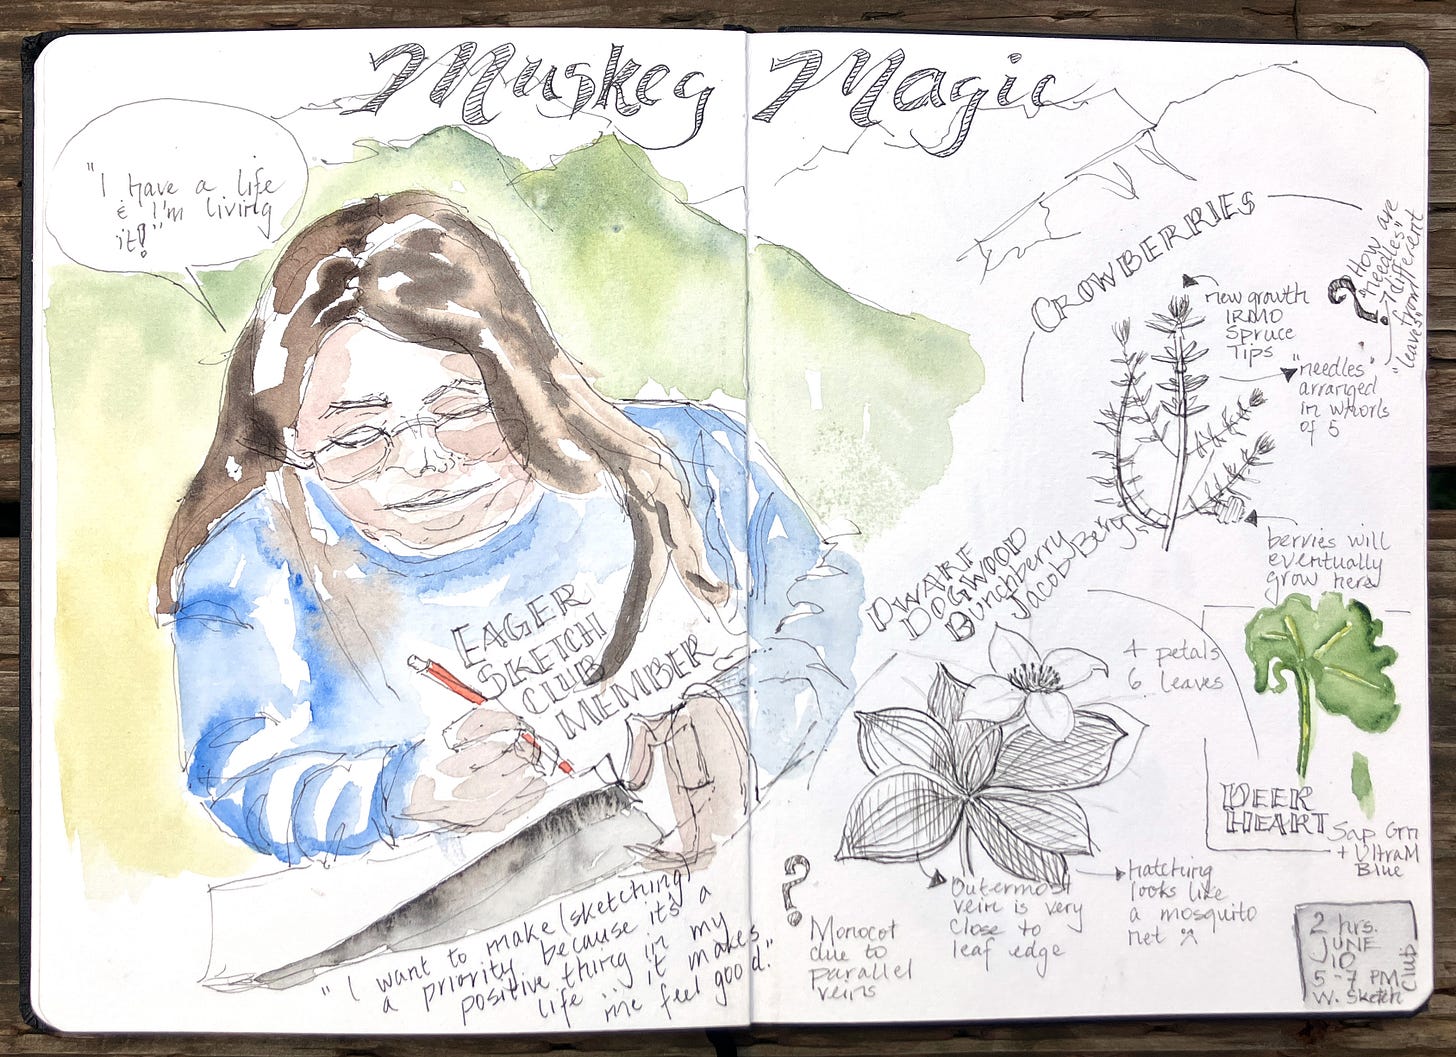 Muskeg Magic
"I have a life
& I'm living
it!"
EAGER
SKETCH
CLUB
MEMBER
"I want to make (sketching)
a priority because it's a
positive thing in my
life... it makes
me feel good."
CROWBERRIES
new growth
IRMO
Spruce
Tips
? How are
"needles"
different
from
"leaves"
"needles"
arranged
in whorls
of 5
berries will
eventually
grow here
DWARF
DOGWOOD
Bunchberry
Jacob Berry
4 petals
6 leaves
DEER
HEART
Sap Grn
+ UltraM
Blue
?
Monocot
due to
parallel
veins
Outermost
vein is very
close to
leaf edge
hatching
looks like
a mosquito
net
2 hrs.
JUNE
10
5-7 PM
W. Sketch Club